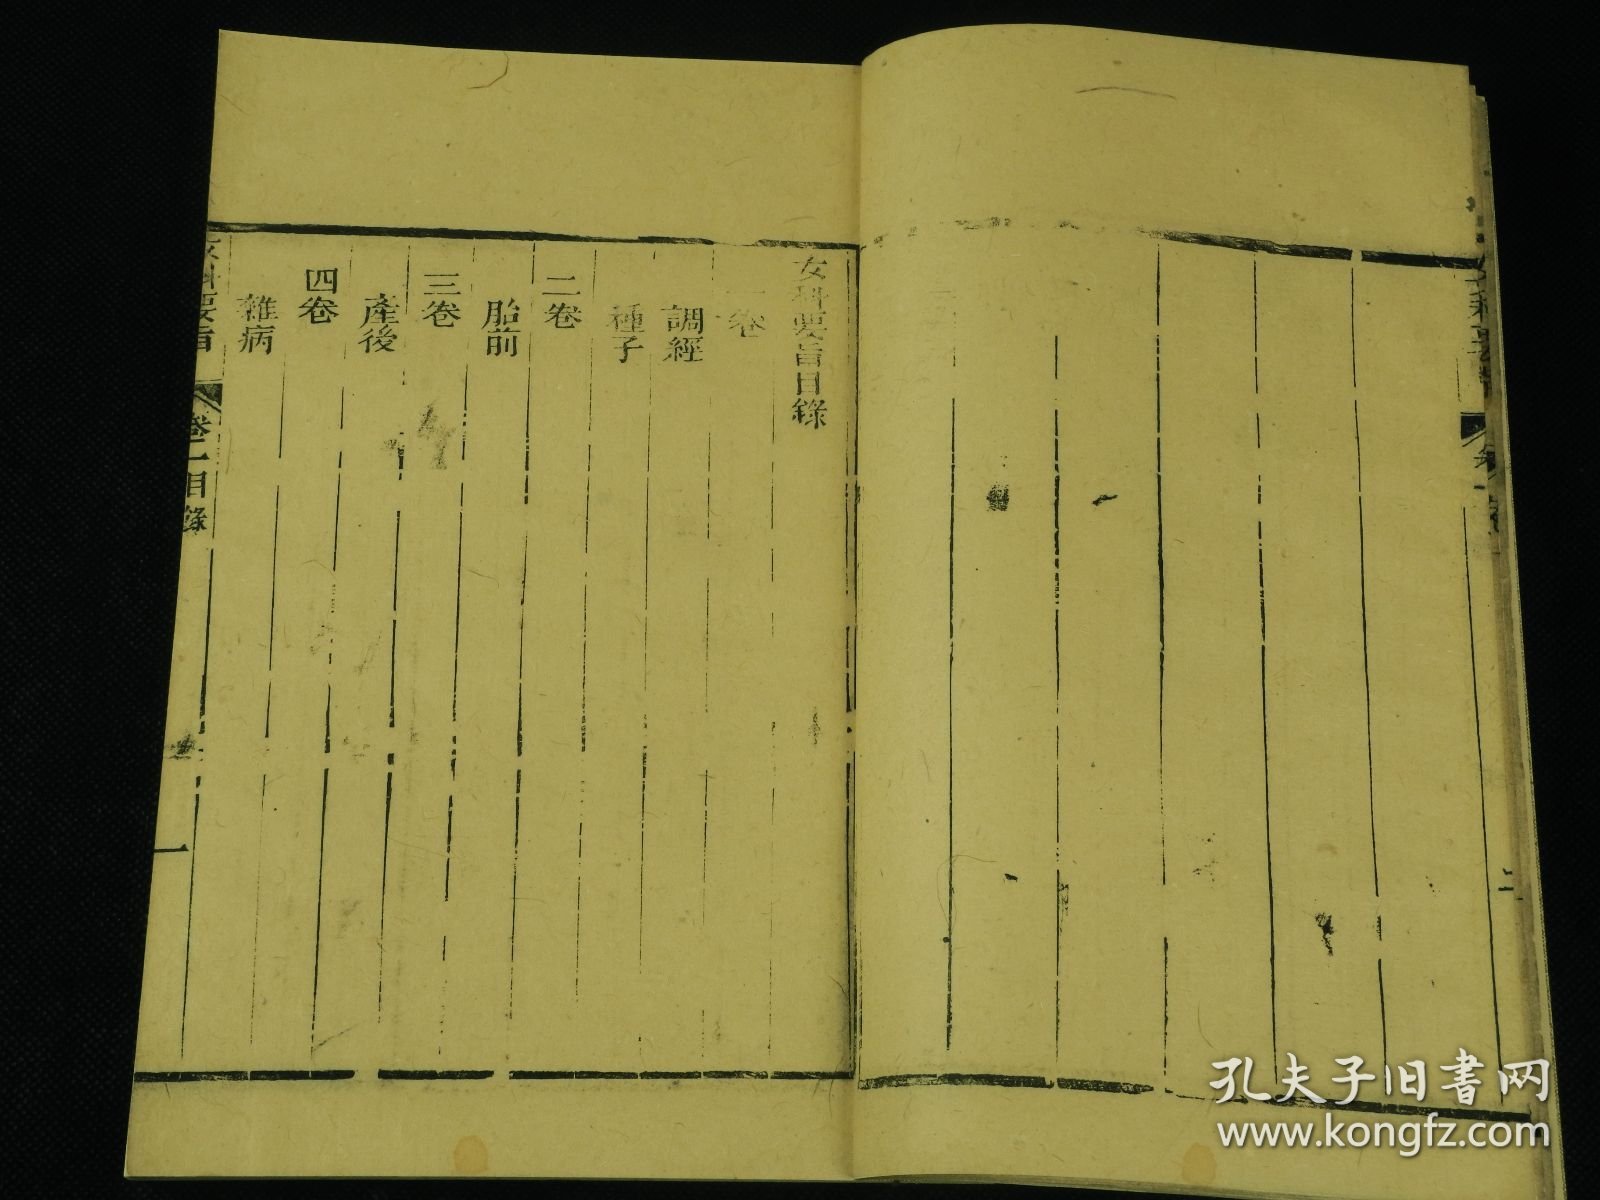 女科要旨目錄
一卷
調經
種子
二卷
胎前
三卷
產後
四卷
雜病
女科要旨
卷一目錄
一
二
孔夫子旧书网
www.kongfz.com